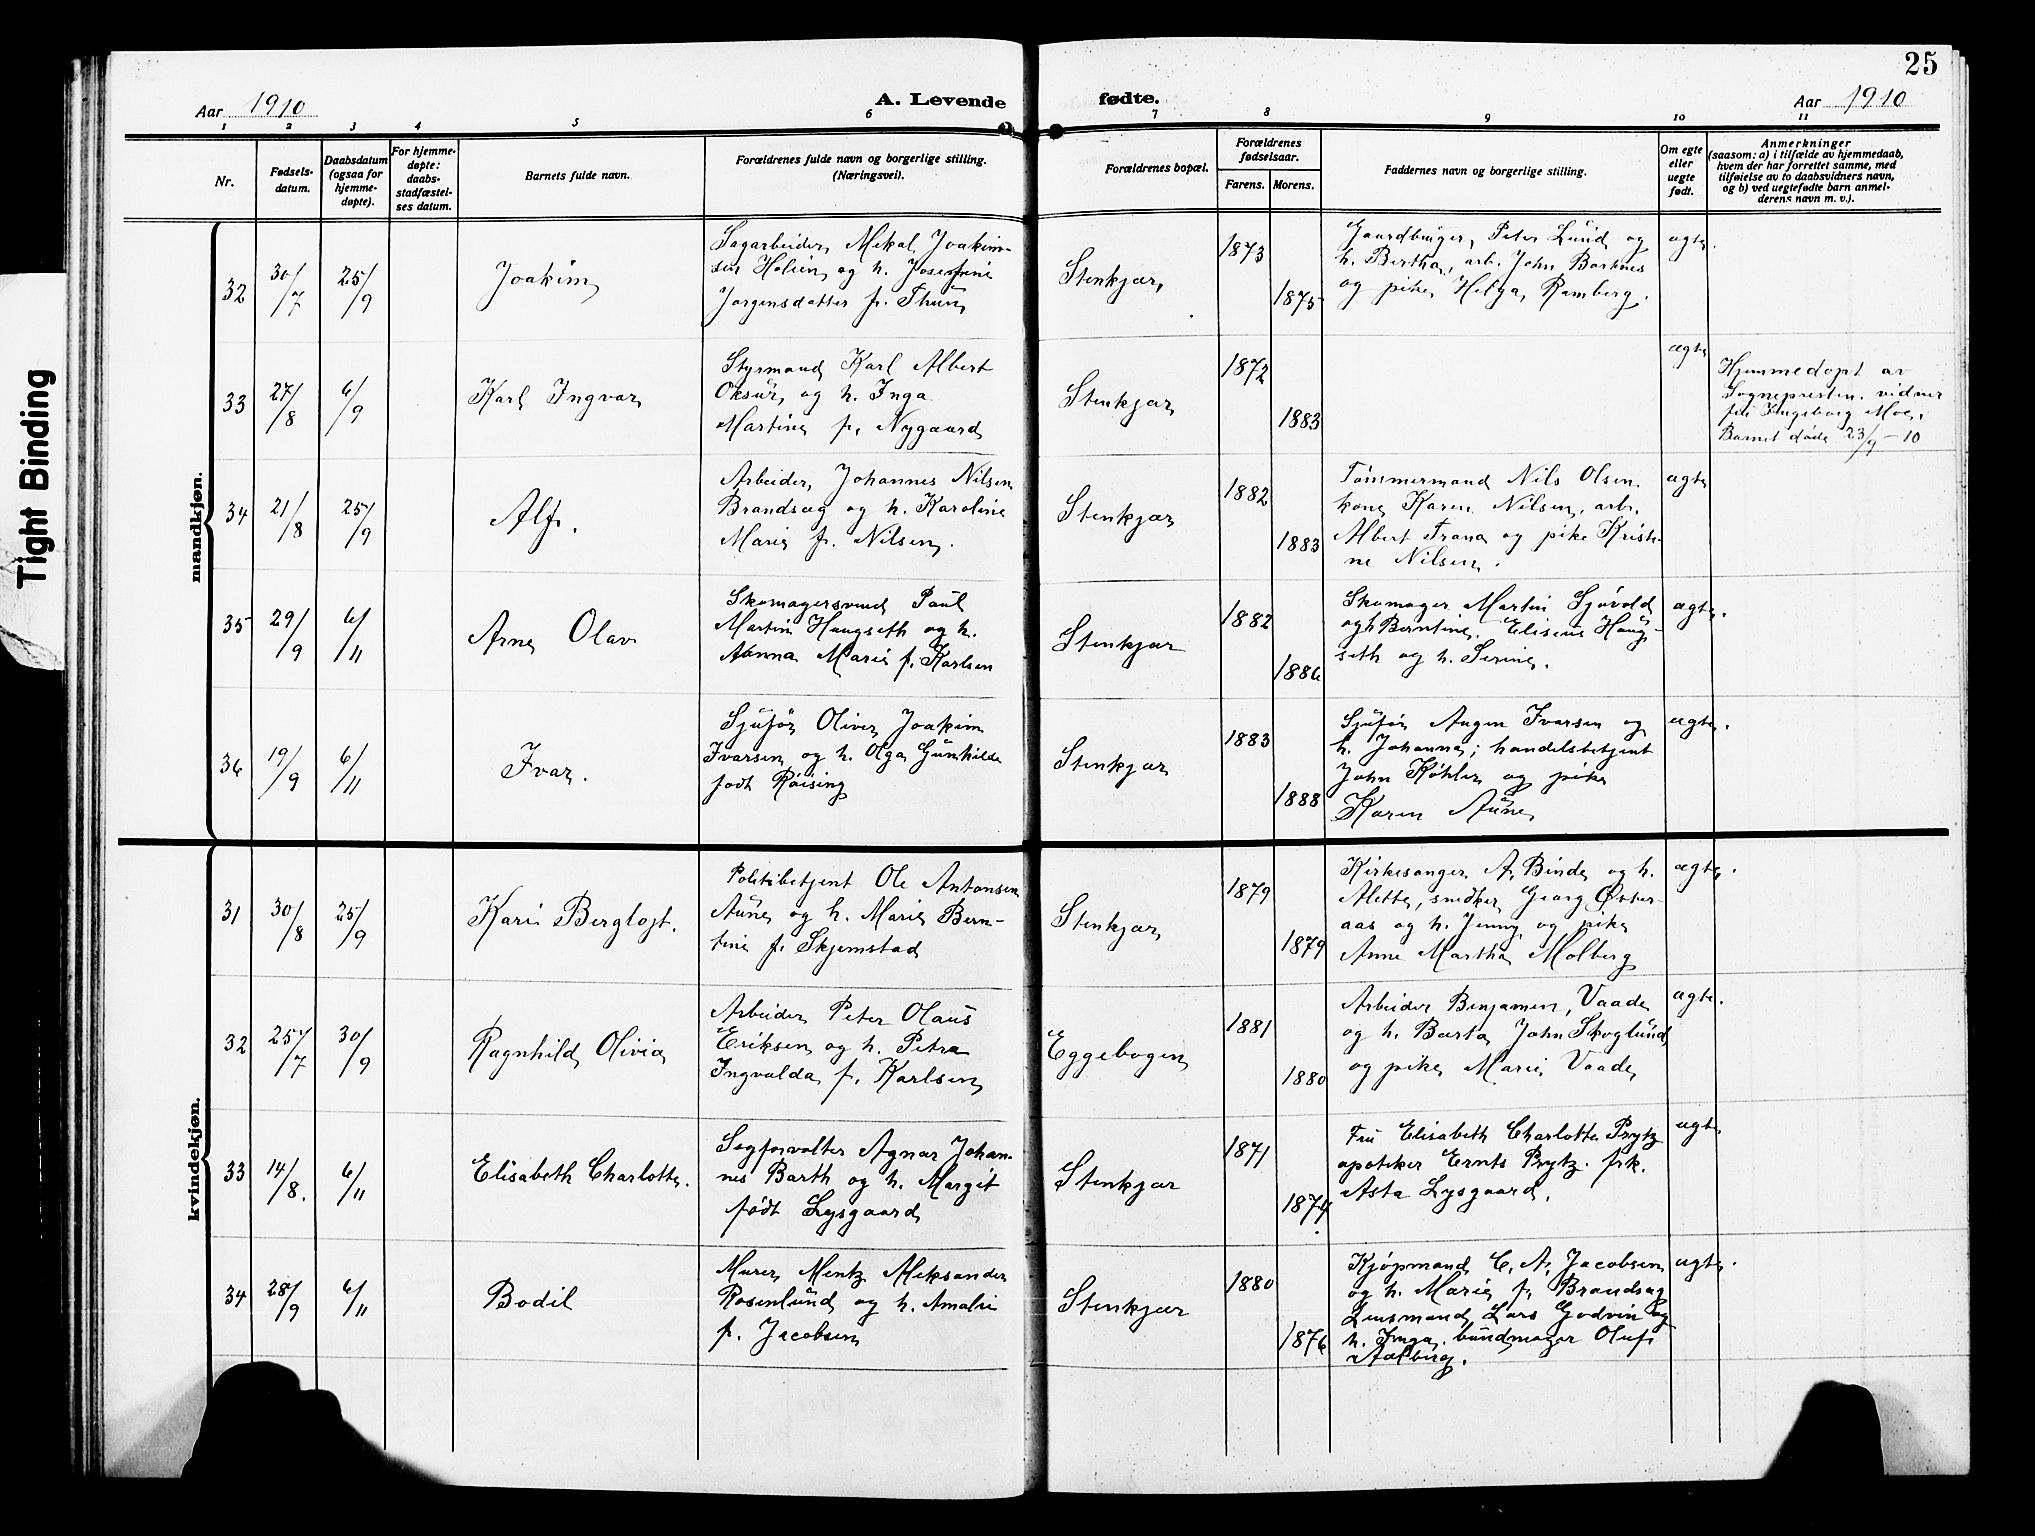 25
Aar 1910
A. Levende fødte.
Aar 1910
1 2 3 4 5 6 7 8 9 10 11
Nr.
Fødsels-
datum.
Daabsdatum
(ogsaa for
hjemme-
døpte).
For hjemme-
døpte:
daabs-
stadfæstel-
ses datum.
Barnets fulde navn.
Forældrenes fulde navn og borgerlige stilling.
(Næringsvei).
Forældrenes bopæl.
Forældrenes
fødselsaar.
Farens. Morens.
Faddernes navn og borgerlige stilling.
Om egte
eller
uegte
født.
Anmerkninger
(saasom: a) i tilfælde av hjemmedaab,
hvem der har forrettet samme, med
tilføielse av to daabsvidners navn,
og b) ved uegtefødte barn anmel-
derens navn m. v.).
Tight Binding
mandkjøn.
32 30/7 25/9 Joakim
Sagarbeider Mikal Joakim-
sen Holien og h. Josefine
Jørgensdatter f. Thun
Stenkjær
1873
1875
Gaardbruger Peter Lund og
h. Bertha, arb. John Bartnes
og pike Helga Ramberg.
ægte.
33 27/8 6/9 Karl Ingvar
Styrmand Karl Albert
Oksur og h. Inga
Martine f. Nygaard
Stenkjær
1872
1883
ægte
Hjemmedøpt av
Sognepresten. vidner
frk Ingeborg Moe,
Barnet døde 23/9-10
34 21/8 25/9 Alf.
Arbeider Johannes Nilsen
Brandsæg og h. Karoline
Marie f. Nilsen.
Stenkjær
1882
1883
Tømmermand Nils Olsen
kone Karen Nilsen, arb.
Albert Trana og pike Kristi-
ne Nilsen.
ægte
35 29/9 6/11 Arne Olav
Skomagersvend Paul
Martin Haugseth og h.
Anna Marie f. Karlsen
Stenkjær
1882
1886
Skomager Martin Sjøvold
og h Berntine. Eliseus Haug-
seth og h. Serine.
ægte.
36 19/9 6/11 Ivar.
Sjøfør Oliver Joakim
Ivarsen og h. Olga Gunhilde
født Røising
Stenkjær
1883
1888
Sjøfør Augen Ivarsen og
h. Johanna; handelsbetjent
John Køhler og pike
Karen Aune
ægte.
kvindekjøn.
31 30/8 25/9 Kari Bergljot.
Politibetjent Ole Antonsen
Aune og h. Marie Bern-
tine f. Skjemstad
Stenkjær
1879
1879
Kirkesanger A. Binde og h.
Alette, snedker Georg Øster-
aas og h. Jenny og pike
Anne Martha Molberg
ægte.
32 25/7 30/9 Ragnhild Olivia
Arbeider Peter Olaus
Eriksen og h. Petra
Ingvalda f. Karlsen
Eggebogen
1881
1880
Arbeider Benjamin Vaade
og h. Berta John Skoglund
og pike Marie Vaade
ægte.
33 14/8. 6/11 Elisabeth Charlotte.
Sagforvalter Agnar Johan-
nes Barth og h. Margit
født Lysgaard
Stenkjær
1871
1874
Fru Elisabeth Charlotte Prytz
apotheker Ernts Prytz. frk.
Asta Lysgaard.
ægte
34 28/9 6/11 Bodil
Murer Mentz Aleksander
Rosenlund og h. Amalie
f. Jacobsen
Stenkjær
1880
1876
Kjøpmand C. A. Jacobsen
og h. Marie f. Brandsæg
Lensmand Lars Godvin og
h. Inga. bundmager Oluf
Aalberg.
ægte.